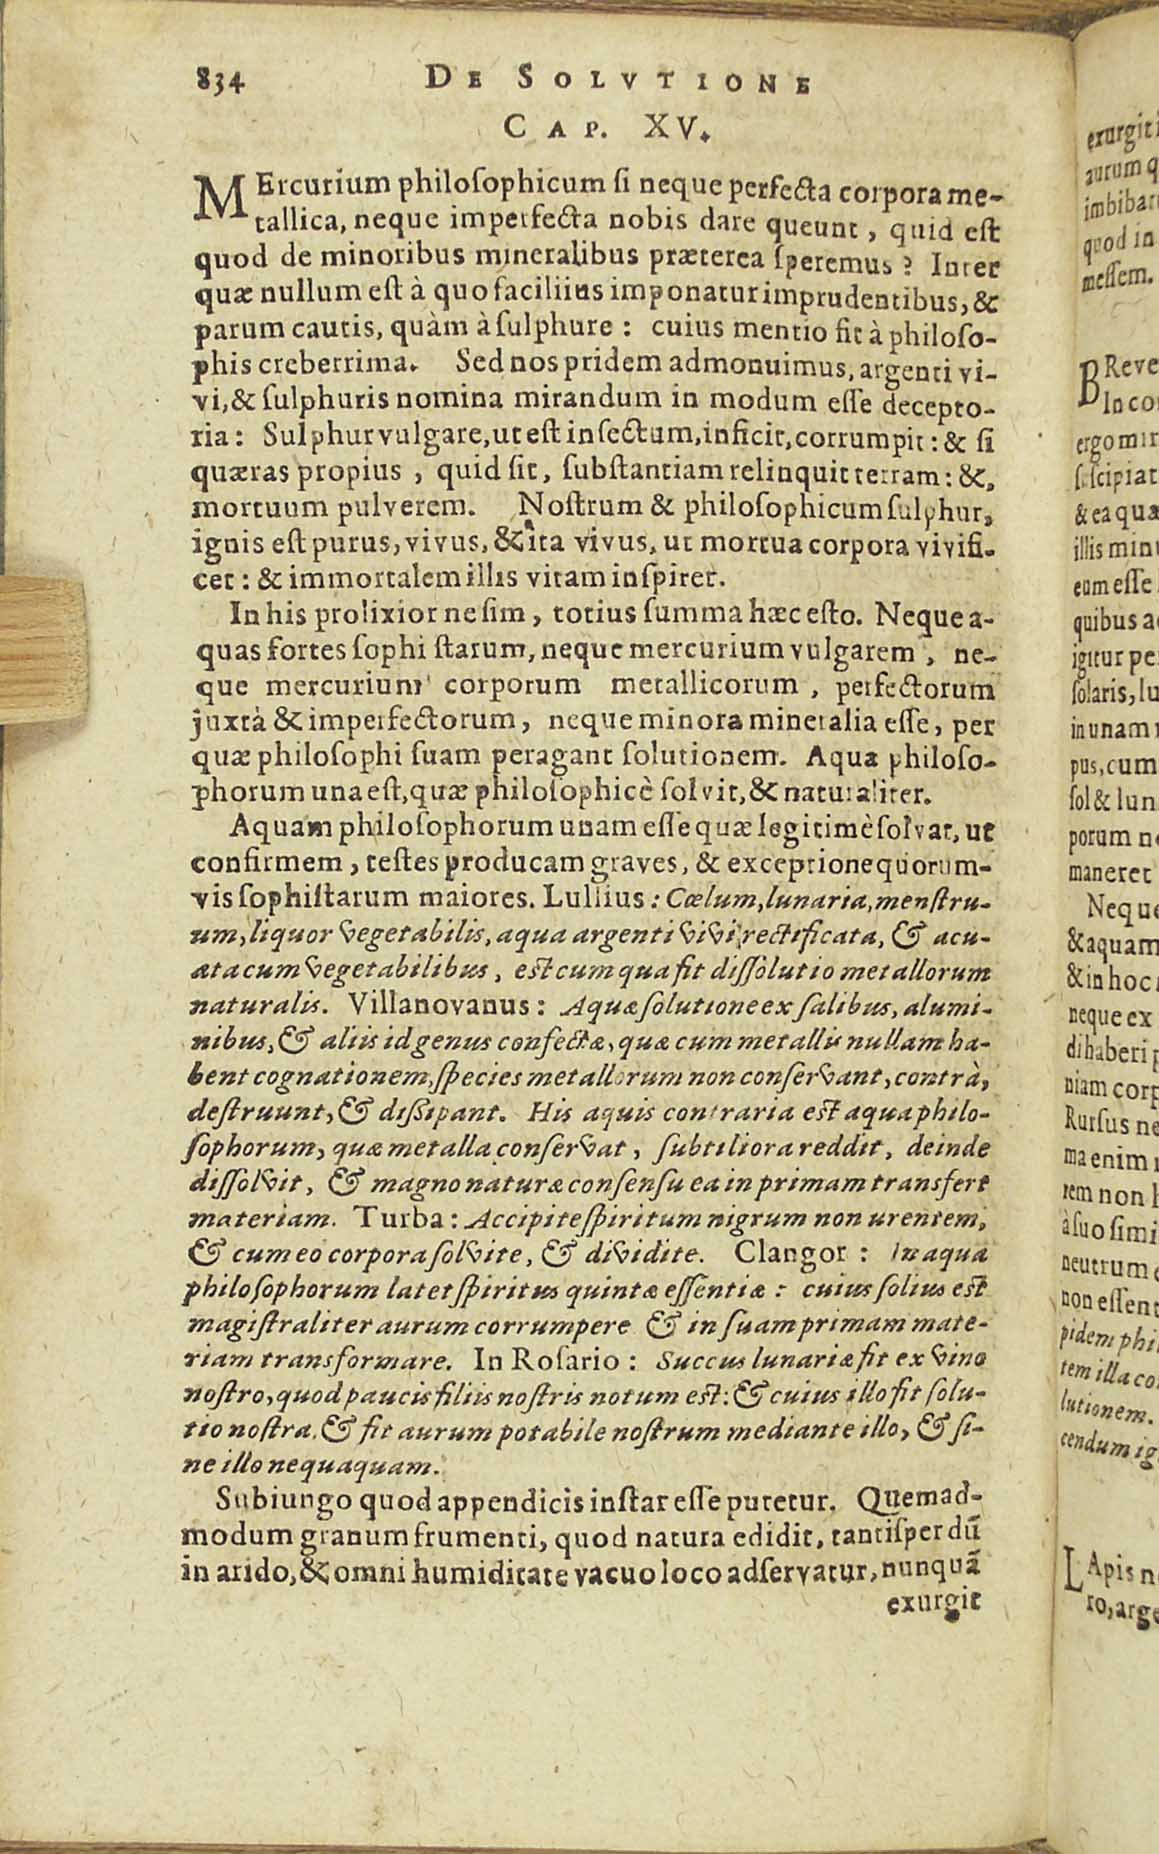 834 DE SOLVTIONE
CAP. XV.
MErcurium philosophicum si neque perfecta corpora me-
tallica, neque imperfecta nobis dare queunt, quid est
quod de minoribus mineralibus præterea speremus? Inter
quæ nullum est à quo faciliius imponatur imprudentibus, &
parum cautis, quàm à sulphure: cuius mentio fit à philoso-
phis creberrima. Sed nos pridem admonuimus, argenti vi-
vi, & sulphuris nomina mirandum in modum esse decepto-
ria: Sulphur vulgare, ut est insectum, inficit, corrumpit: & si
quæras propius, quid sit, substantiam relinquit terram: &,
mortuum pulverem. Nostrum & philosophicum sulphur,
ignis est purus, vivus, & ita vivus, ut mortua corpora vivifi-
cet: & immortalem illis vitam inspiret.
In his prolixior ne sim, totius summa hæc esto. Neque a-
quas fortes sophistarum, neque mercurium vulgarem, ne-
que mercurium corporum metallicorum, perfectorum
juxtà & imperfectorum, neque minora mineralia esse, per
quæ philosophi suam peragant solutionem. Aqua philoso-
phorum una est, quæ philosophicè solvit, & naturaliter.
Aquam philosophorum unam esse quæ legitimè solvat, ut
confirmem, testes producam graves, & exceptione quorum-
vis sophistarum maiores. Lullius: Cœlum, lunaria, menstru-
um, liquor vegetabilis, aqua argenti vivi rectificata, & acu-
ata cum vegetabilibus, est cum qua fit dissolutio metallorum
naturalis. Villanovanus: Aquæ solutione ex salibus, alumi-
nibus, & aliis id genus confectæ, quæ cum metallis nullam ha-
bent cognationem, species metallorum non conservant, contrà,
destruunt, & dissipant. His aquis contraria est aqua philo-
sophorum, quæ metalla conservat, subtiliora reddit, deinde
dissolvit, & magno naturæ consensu ea in primam transfert
materiam. Turba: Accipite spiritum nigrum non urentem,
& cum eo corpora solvite, & dividite. Clangor: In aqua
philosophorum latet spiritus quintæ essentiæ: cuius solius est
magistraliter aurum corrumpere & in suam primam mate-
riam transformare. In Rosario: Succus lunariæ fit ex vino
nostro, quod paucis filiis nostris notum est: & cuius illo fit solu-
tio nostra, & fit aurum potabile nostrum mediante illo, & si-
ne illo nequaquam.
Subiungo quod appendicis instar esse putetur. Quemad-
modum granum frumenti, quod natura edidit, tantisper dũ
in arido, & omni humiditate vacuo loco adservatur, nunquã
exurgit
exurgit
aurum q
imbibat
quod in
messem.
BReve
In co
ergo mir
suscipiat
& ea qua
illis min
eum esse
quibus a
igitur pe
solaris, lu
in unam
pus, cum
sol & lun
porum n
maneret
Neque
& aquam
& in hoc
neque ex
di haberi p
niam corp
Rursus ne
ma enim
rem non
à suo simi
neutrum
non essent
pidem phi
tem illa co
lutionem.
cendum ig
LApis n
ro, arge